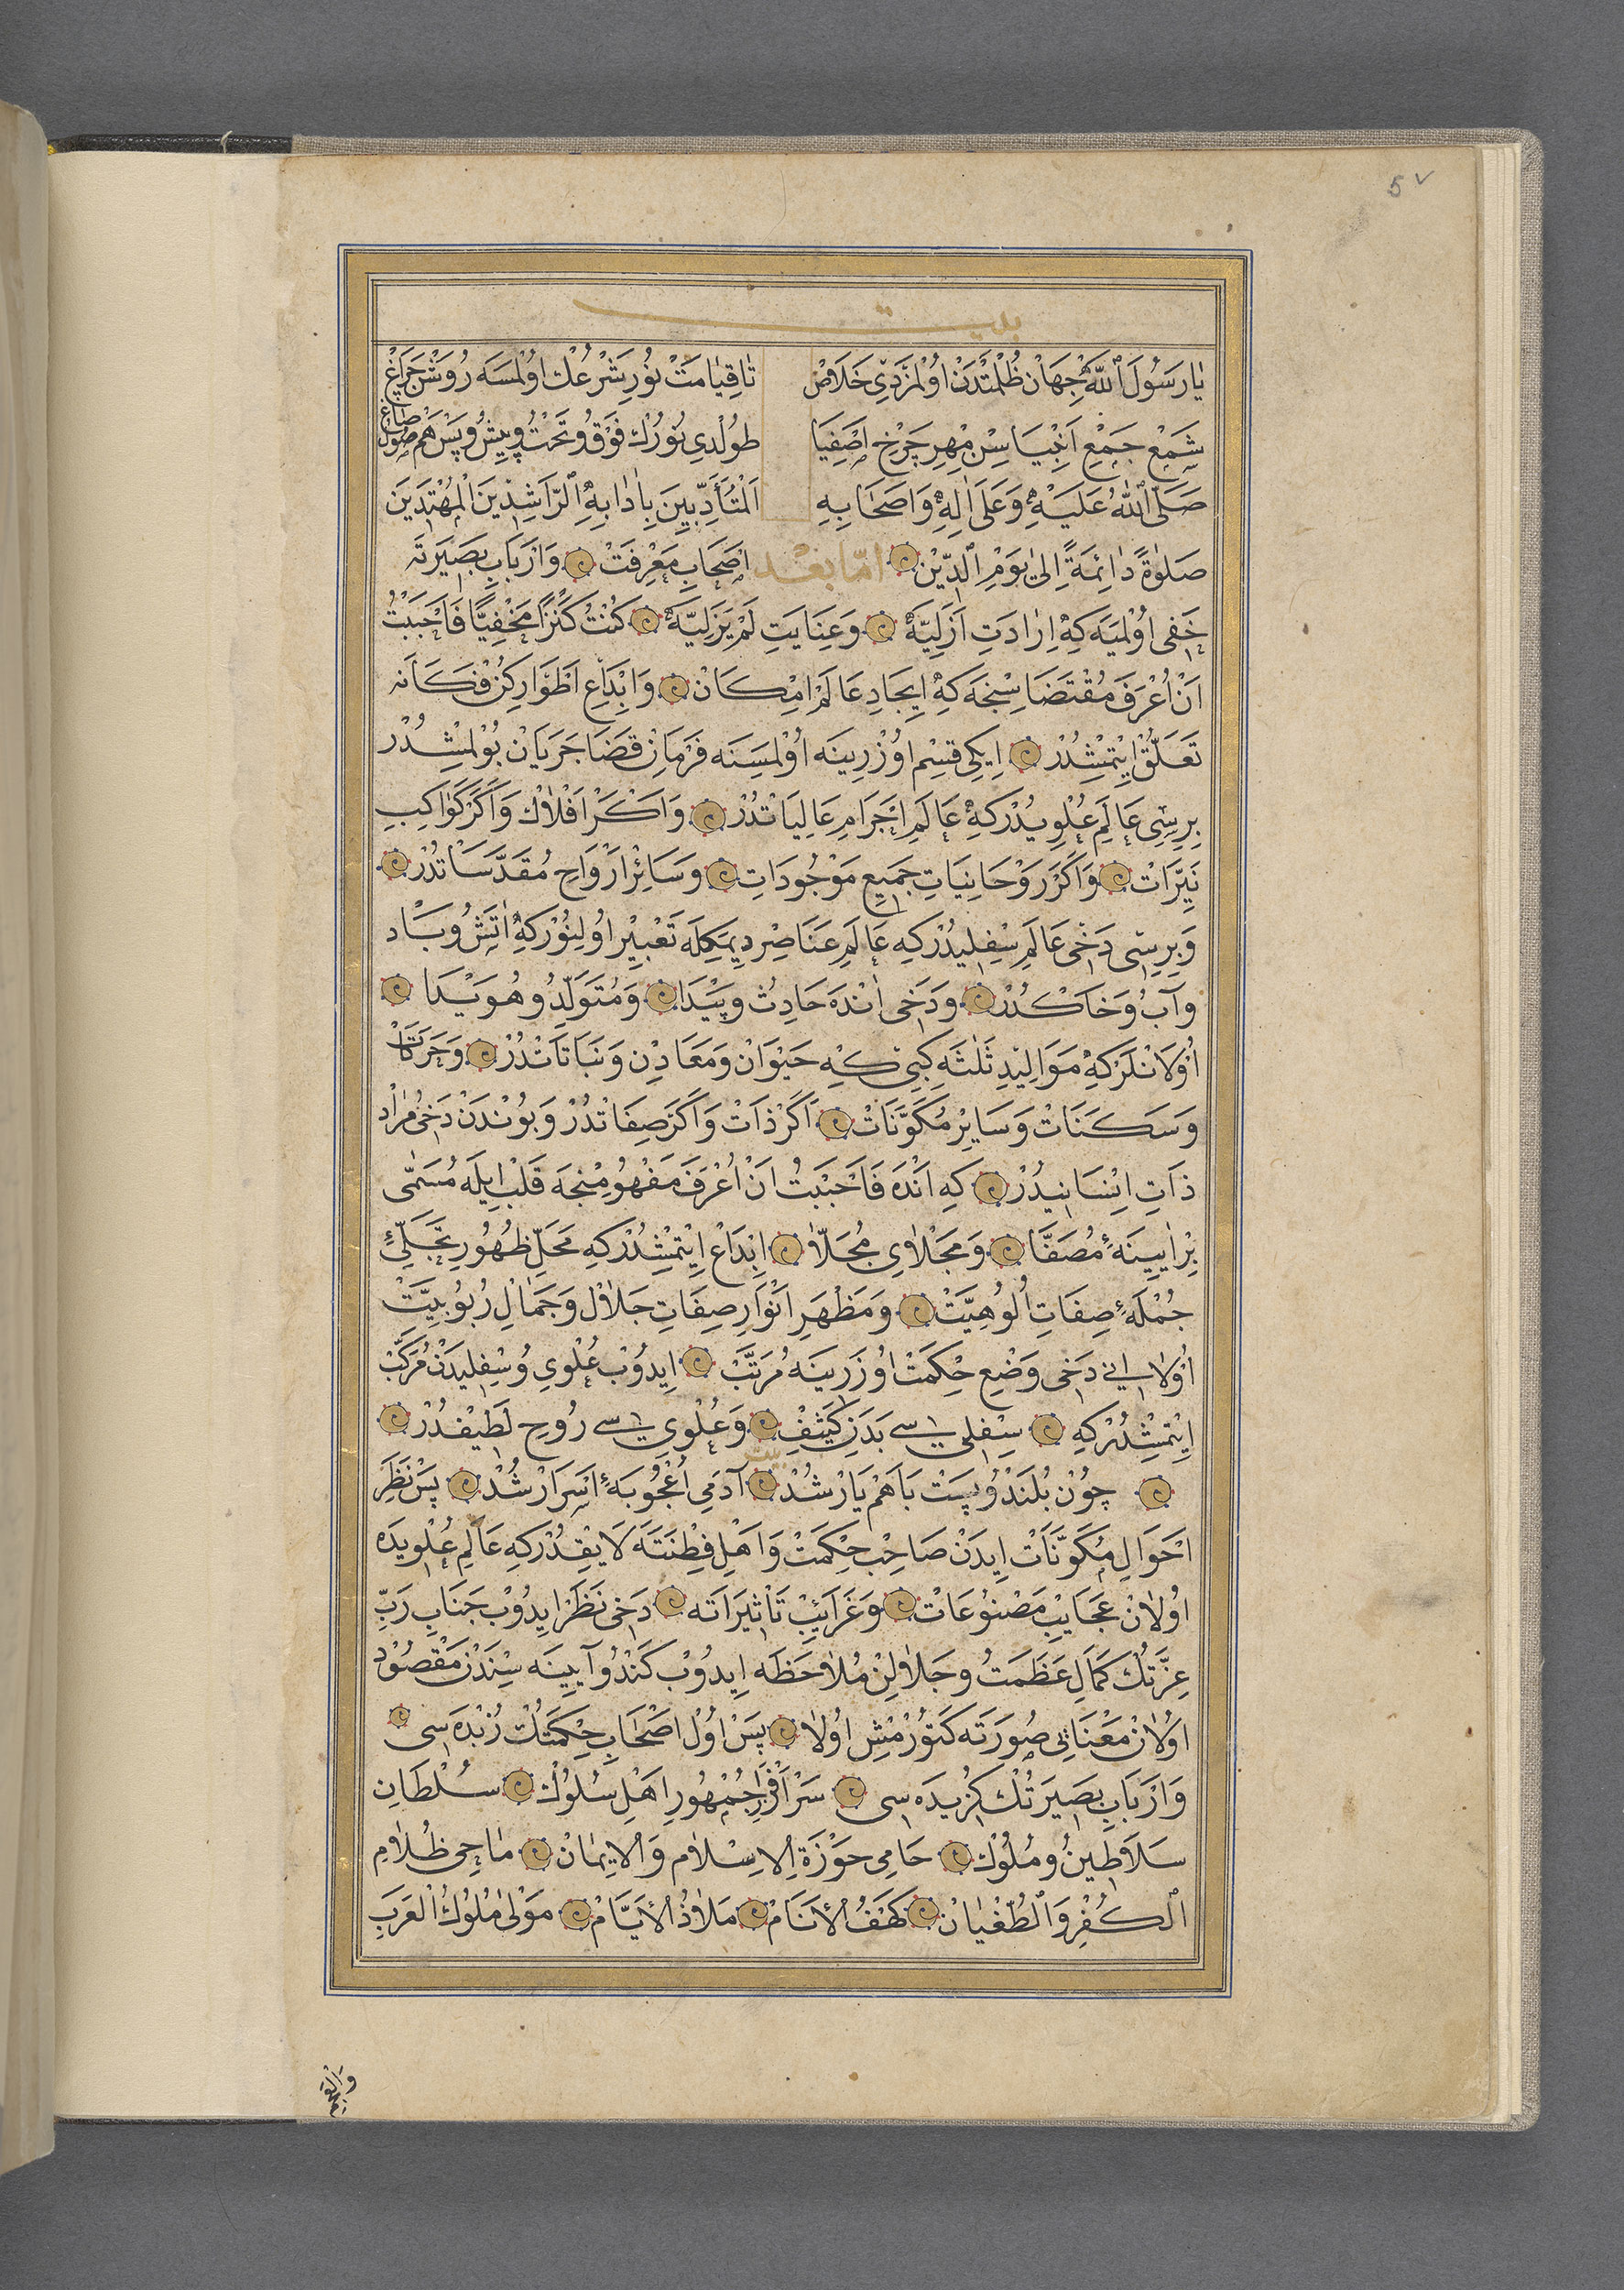 5 ٧
بيت
يَا رَسُولَ ٱللّٰهْ جِهَانْ ظُلْمَتْدَنْ اُولْمَزْدِي خَلَاصْ تَا قِيَامَتْ نُورِ شَرْعُكْ اُولْمَسَه رُوشَنْ چَرَاغْ
شَمْعِ جَمْعِ اَنْبِيَا سِنْ مِهْرِ چَرْخِ اَصْفِيَا طُولْدِي نُورُكْ فَوْقُ و تَحْتُ و پِيشُ و پَسْ هَمْ صُولْ صَاغْ
صَلَّى ٱللّٰهُ عَلَيْهِ وَعَلَى اٰلِهِ وَاَصْحَابِهِ اَلْمُتَأَدِّبِينَ بِاٰدَابِهِ ٱلرَّاشِدِينَ الْمُهْتَدِينَ
صَلٰوةً دَائِمَةً اِلٰى يَوْمِ ٱلدِّيْن اَمَّا بَعْد اَصْحَابِ مَعْرِفَتْ وَاَرْبَابِ بَصِيرَتَه
خَفِى اُولْمَيَه كِه اِرَادَتِ اَزَلِيَّه وَعِنَايَتِ لَمْ يَزَلِيَّه كُنْتُ كَنْزًا مَخْفِيًّا فَاَحْبَبْتُ
اَنْ اُعْرَفَ مُقْتَضَاسِنْجَه كِه اِيجَادِ عَالَمِ اِمْكَانْ وَاِبْدَاعِ اَطْوَارِ كُنْ فَكَانَه
تَعَلُّقْ اِيتْمِشْدُرْ اِيكِى قِسْم اُوزْرِينَه اُولْمَسِنَه فَرْمَانِ قَضَا جَرَيَانْ بُولْمِشْدُرْ
بِرِيسِى عَالَمِ عُلْوِيدُرْ كِه عَالَمِ اَجْرَامِ عَالِيَاتْدُرْ وَاَكَرْ اَفْلَاكْ وَاَكَرْ كَوَاكِبِ
نَيِّرَاتْ وَاَكَرْ رَوْحَانِيَاتِ جَمِيعِ مَوْجُودَاتِ وَسَائِرْ اَرْوَاحِ مُقَدَّسَاتْدُرْ
وَبِرِيسِى دَخِى عَالَمِ سِفْلِيدُرْ كِه عَالَمِ عَنَاصِر دِيمَكِلَه تَعْبِيْر اُولِنُورْ كِه اٰتَشُ و بَادُ
و آبُ وَخَاكْدُرْ وَدَخِى اٰنْدَه حَادِثُ و پَيْدَا وَمُتَوَلِّدُ و هُوَيْدَا
اُولَانْلَرْ كِه مَوَالِيْدِ ثَلٰثَه كِبِى كِه حَيْوَانْ وَمَعَادِنْ وَنَبَاتَاتْدُرْ وَحَرَكَاتْ
وَسَكَنَاتْ وَسَايِرْ مُكَوَّنَاتْ اَكَرْ ذَاتْ وَاَكَرْ صِفَاتْدُرْ وَبُونْدَنْ دَخِى مُرَادْ
ذَاتِ اِنْسَانِيدُرْ كِه اَنْدَه فَاَحْبَبْتُ اَنْ اُعْرَفَ مَفْهُومِنْجَه قَلْب اِيلَه مُسَمَّى
بِرْ اٰيِينَهٔ مُصَفَّا وَمَجْلَاىِ مُجَلَّا اِبْدَاعْ اِيتْمِشْدُرْ كِه مَحَلِّ ظُهُورِ تَجَلِّئِ
جُمْلَهٔ صِفَاتِ اُلُوهِيَّتْ وَمَظْهَرِ اَنْوَارِ صِفَاتِ جَلَالْ وَجَمَالِ رُبُوبِيَّتْ
اُولَا انى دَخِى وَضْعِ حِكْمَتْ اُوزَرِينَه مُرَتَّبْ اِيدُوبْ عُلْوِى وُ سِفْلِيدَنْ مُرَكَّبْ
اِيْتمِشْدُرْ كِه سِفْلِى سى بَدَنِ كَثِيفْ وَعُلْوِى سى رُوحِ لَطِيْفْدُرْ
بيت
چُونْ بُلَنْدُ و پَسْت بَاهَمْ يَارْ شُدْ آدَمِى اُعْجُوبَهٔ اَسْرَارْ شُدْ پَسْ نَظَرِ
اَحْوَالِ مُكَوَّنَاتْ اِيدَنْ صَاحِبْ حِكْمَتْ وَاَهْلِ فِطْنَتَه لَايِقْدُرْ كِه عَالَمِ عُلْوِيدَه
اُولَانْ عَجَايِبِ مَصْنُوعَاتْ وَغَرَايِبِ تَاْثِيرَاتَه دَخِى نَظَرْ اِيدُوبْ جَنَابِ رَبِّ
عِزَّتُكْ كَمَالِ عَظَمَتُ و جَلَالِنْ مُلَاحَظَه اِيدُوبْ كَنْدُو آيِينَه سِنْدَنْ مَقْصُودْ
اُولَانْ مَعْنَايِى صُورَتَه كَتُورْمُشْ اُولَا پَسْ اُولْ اَصْحَابِ حِكْمَتُكْ زُبْدَه سِى
وَاَرْبَابِ بَصِيرَتُكْ كُزِيدَه سِى سَرْاَفْرَازِ جُمْهُورِ اَهْلِ سُلُوكْ سُلْطَانِ
سَلَاطِينُ و مُلُوكْ حَامِى حَوْزَةِ الْاِسْلَام وَالْاِيمَانْ مَاحِى ظُلَامِ
ٱلْكُفْرِ وَٱلطُّغْيَانْ كَهْفُ الْاَنَامْ مَلَاذُ الْاَيَّامْ مَوْلٰى مُلُوكُ الْعَرَبِ
وَالْعَجَم